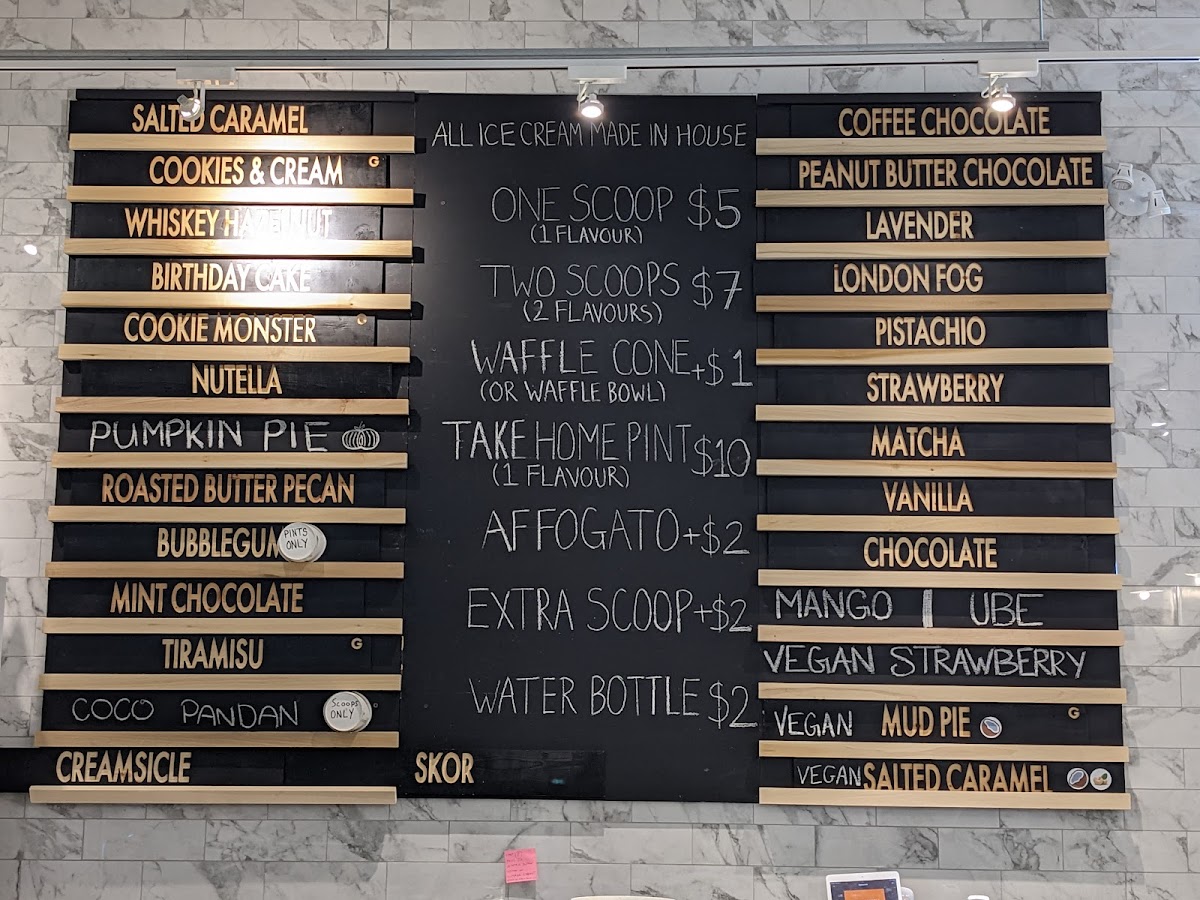 SALTED CARAMEL
COOKIES & CREAM G
WHISKEY HAZELNUT
BIRTHDAY CAKE
COOKIE MONSTER G
NUTELLA
PUMPKIN PIE
ROASTED BUTTER PECAN
BUBBLEGUM
PINTS
ONLY
MINT CHOCOLATE
TIRAMISU G
COCO PANDAN
SCOOPS
ONLY
CREAMSICLE
ALL ICE CREAM MADE IN HOUSE
ONE SCOOP $5
(1 FLAVOUR)
TWO SCOOPS $7
(2 FLAVOURS)
WAFFLE CONE +$1
(OR WAFFLE BOWL)
TAKE HOME PINT $10
(1 FLAVOUR)
AFFOGATO +$2
EXTRA SCOOP +$2
WATER BOTTLE $2
SKOR
COFFEE CHOCOLATE
PEANUT BUTTER CHOCOLATE
LAVENDER
LONDON FOG
PISTACHIO
STRAWBERRY
MATCHA
VANILLA
CHOCOLATE
MANGO | UBE
VEGAN STRAWBERRY
VEGAN MUD PIE G
VEGAN SALTED CARAMEL